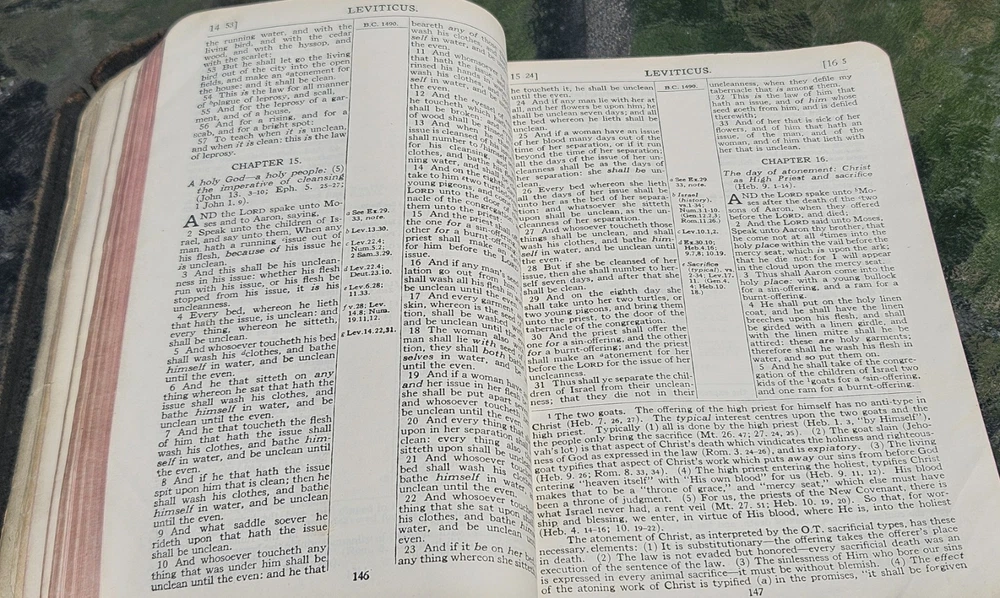 LEVITICUS.
[14 53]
the running water, and with the
living bird, and with the cedar
wood, and with the hyssop, and
with the scarlet:
53 But he shall let go the living
bird out of the city into the open
fields, and make an ᵃatonement for
the house: and it shall be clean.
54 This is the law for all manner
of ᵍplague of leprosy, and scall,
55 And for the leprosy of a gar-
ment, and of a house,
56 And for a rising, and for a
scab, and for a bright spot:
57 To teach when it is unclean,
and when it is clean: this is the law
of leprosy.
CHAPTER 15.
A holy God—a holy people: (5)
the imperative of cleansing
(John 13. 3-10; Eph. 5. 25-27;
1 John 1. 9).
AND the LORD spake unto Mo-
ses and to Aaron, saying,
2 Speak unto the children of Is-
rael, and say unto them, When any
man hath a running issue out of
his flesh, because of his issue he
is unclean.
3 And this shall be his unclean-
ness in his issue: whether his flesh
run with his issue, or his flesh be
stopped from his issue, it is his
uncleanness.
4 Every bed, whereon he lieth
that hath the issue, is unclean: and
every thing, whereon he sitteth,
shall be unclean.
5 And whosoever toucheth his bed
shall wash his clothes, and bathe
himself in water, and be unclean
until the even.
6 And he that sitteth on any
thing whereon he sat that hath the
issue shall wash his clothes, and
bathe himself in water, and be
unclean until the even.
7 And he that toucheth the flesh
of him that hath the issue shall
wash his clothes, and bathe him-
self in water, and be unclean until
the even.
8 And if he that hath the issue
spit upon him that is clean; then he
shall wash his clothes, and bathe
himself in water, and be unclean
until the even.
9 And what saddle soever he
rideth upon that hath the issue
shall be unclean.
10 And whosoever toucheth any
thing that was under him shall be
unclean until the even: and he that
B.C. 1490.
a See Ex. 29.
33, note.
b Lev.13.30.
c Lev.22.4;
Num.5.2;
2 Sam.3.29.
d Lev.22.4;
Deut.23.10.
e Lev.6.28;
11.33.
f v.28; Lev.
14.8; Num.
19.11,12.
g Lev.14.22,31.
beareth any of
wash his clothes,
self in water, and
the even.
11 And whomsoever
that hath the issue,
rinsed his hands in
wash his clothes,
self in water, and
the even.
12 And the vessel
he toucheth
shall be broken,
of wood shall be
13 And when
issue is cleansed
shall number to
for his cleansing,
clothes, and bathe
ning water, and shall
14 And on the
take to him two turtle
young pigeons, and
LORD unto the door
nacle of the congrega
them unto the priest:
15 And the
the one for a sin
other for a burnt
priest shall make
for him before the
issue.
16 And if any man's
lation go out from
shall wash all his flesh
be unclean until the even
17 And every garment
skin, whereon is the
tion, shall be washed
and be unclean until
18 The woman also
man shall lie with seed
tion, they shall both
selves in water,
until the even.
19 And if a woman
and her issue in her flesh
she shall be put apart
and whosoever touch
be unclean until the even
20 And every thing
upon in her separation
clean: every thing also
sitteth upon shall be
21 And whosoever
bed shall wash his
bathe himself in water
unclean until the even.
22 And whosoever
thing that she sat upon
his clothes, and bathe
water, and be unclean
even.
23 And if it be on her bed
any thing whereon she sitteth
146
15 24]
LEVITICUS.
[16 5
he toucheth it, he shall be unclean
the even.
24 And if any man lie with her at
all, and her flowers be upon him, he
shall be unclean seven days; and all
the bed whereon he lieth shall be
unclean.
25 And if a woman have an issue
of her blood many days out of the
time of her separation, or if it run
beyond the time of her separation;
all the days of the issue of her un-
cleanness shall be as the days of
her separation: she shall be un-
clean.
26 Every bed whereon she lieth
all the days of her issue shall be
unto her as the bed of her separa-
tion: and whatsoever she sitteth
upon shall be unclean, as the un-
cleanness of her separation.
27 And whosoever toucheth those
things shall be unclean, and shall
wash his clothes, and bathe him-
self in water, and be unclean until
the even.
28 But if she be cleansed of her
issue, then she shall number to her-
self seven days, and after that she
shall be clean.
29 And on the eighth day she
shall take unto her two turtles, or
two young pigeons, and bring them
unto the priest, to the door of the
tabernacle of the congregation.
30 And the priest shall offer the
one for a sin-offering, and the other
for a burnt-offering; and the priest
shall make an ᵃatonement for her
before the LORD for the issue of her
uncleanness.
31 Thus shall ye separate the chil-
dren of Israel from their unclean-
ness; that they die not in their
B.C. 1490.
a See Ex.29
33, note.
b Israel
(history).
Num.3.1-10.
(Gen.12.2,3;
Rom.11.26.)
c Lev.10.1,2.
d Ex.30.10;
Heb.4.16;
9.7,8; 10.19.
e Sacrifice
(typical). vs.
2-34; Lev.17.
11. (Gen.4.
4; Heb.10.
18.)
uncleanness, when they defile my
tabernacle that is among them.
32 This is the law of him that
hath an issue, and of him whose
seed goeth from him, and is defiled
therewith;
33 And of her that is sick of her
flowers, and of him that hath an
issue, of the man, and of the
woman, and of him that lieth with
her that is unclean.
CHAPTER 16.
The day of atonement: Christ
as High Priest and sacrifice
(Heb. 9. 1-14).
AND the LORD spake unto ᵇMo-
ses after the death of the ᶜtwo
sons of Aaron, when they offered
before the LORD, and died;
2 And the LORD said unto Moses,
Speak unto Aaron thy brother, that
he come not at all ᵈtimes into the
holy place within the vail before the
mercy seat, which is upon the ark;
that he die not: for I will appear
in the cloud upon the mercy seat.
3 Thus shall Aaron come into the
holy place: with a young bullock
for a sin-offering, and a ram for a
burnt-offering.
4 He shall put on the holy linen
coat, and he shall have the linen
breeches upon his flesh, and shall
be girded with a linen girdle, and
with the linen mitre shall he be
attired: these are holy garments;
therefore shall he wash his flesh in
water, and so put them on.
5 And he shall take of the congre-
gation of the children of Israel two
kids of the ¹goats for a ᵉsin-offering,
and one ram for a burnt-offering.
1 The two goats. The offering of the high priest for himself has no anti-type in
Christ (Heb. 7. 26, 27). The typical interest centres upon the two goats and the
high priest. Typically (1) all is done by the high priest (Heb. 1. 3, "by Himself"),
the people only bring the sacrifice (Mt. 26. 47; 27. 24, 25). (2) The goat slain (Jeho-
vah's lot) is that aspect of Christ's death which vindicates the holiness and righteous-
ness of God as expressed in the law (Rom. 3. 24-26), and is expiatory. (3) The living
goat typifies that aspect of Christ's work which puts away our sins from before God
(Heb. 9. 26; Rom. 8. 33, 34). (4) The high priest entering the holiest, typifies Christ
entering "heaven itself" with "His own blood" for us (Heb. 9. 11, 12). His blood
makes that to be a "throne of grace," and "mercy seat," which else must have
been a throne of judgment. (5) For us, the priests of the New Covenant, there is
what Israel never had, a rent veil (Mt. 27. 51; Heb. 10. 19, 20). So that, for wor-
ship and blessing, we enter, in virtue of His blood, where He is, into the holiest
(Heb. 4. 14-16; 10. 19-22).
The atonement of Christ, as interpreted by the O.T. sacrificial types, has these
necessary elements: (1) It is substitutionary—the offering takes the offerer's place
in death. (2) The law is not evaded but honored—every sacrificial death was an
execution of the sentence of the law. (3) The sinlessness of Him who bore our sins
is expressed in every animal sacrifice—it must be without blemish. (4) The effect
of the atoning work of Christ is typified (a) in the promises, "it shall be forgiven
147